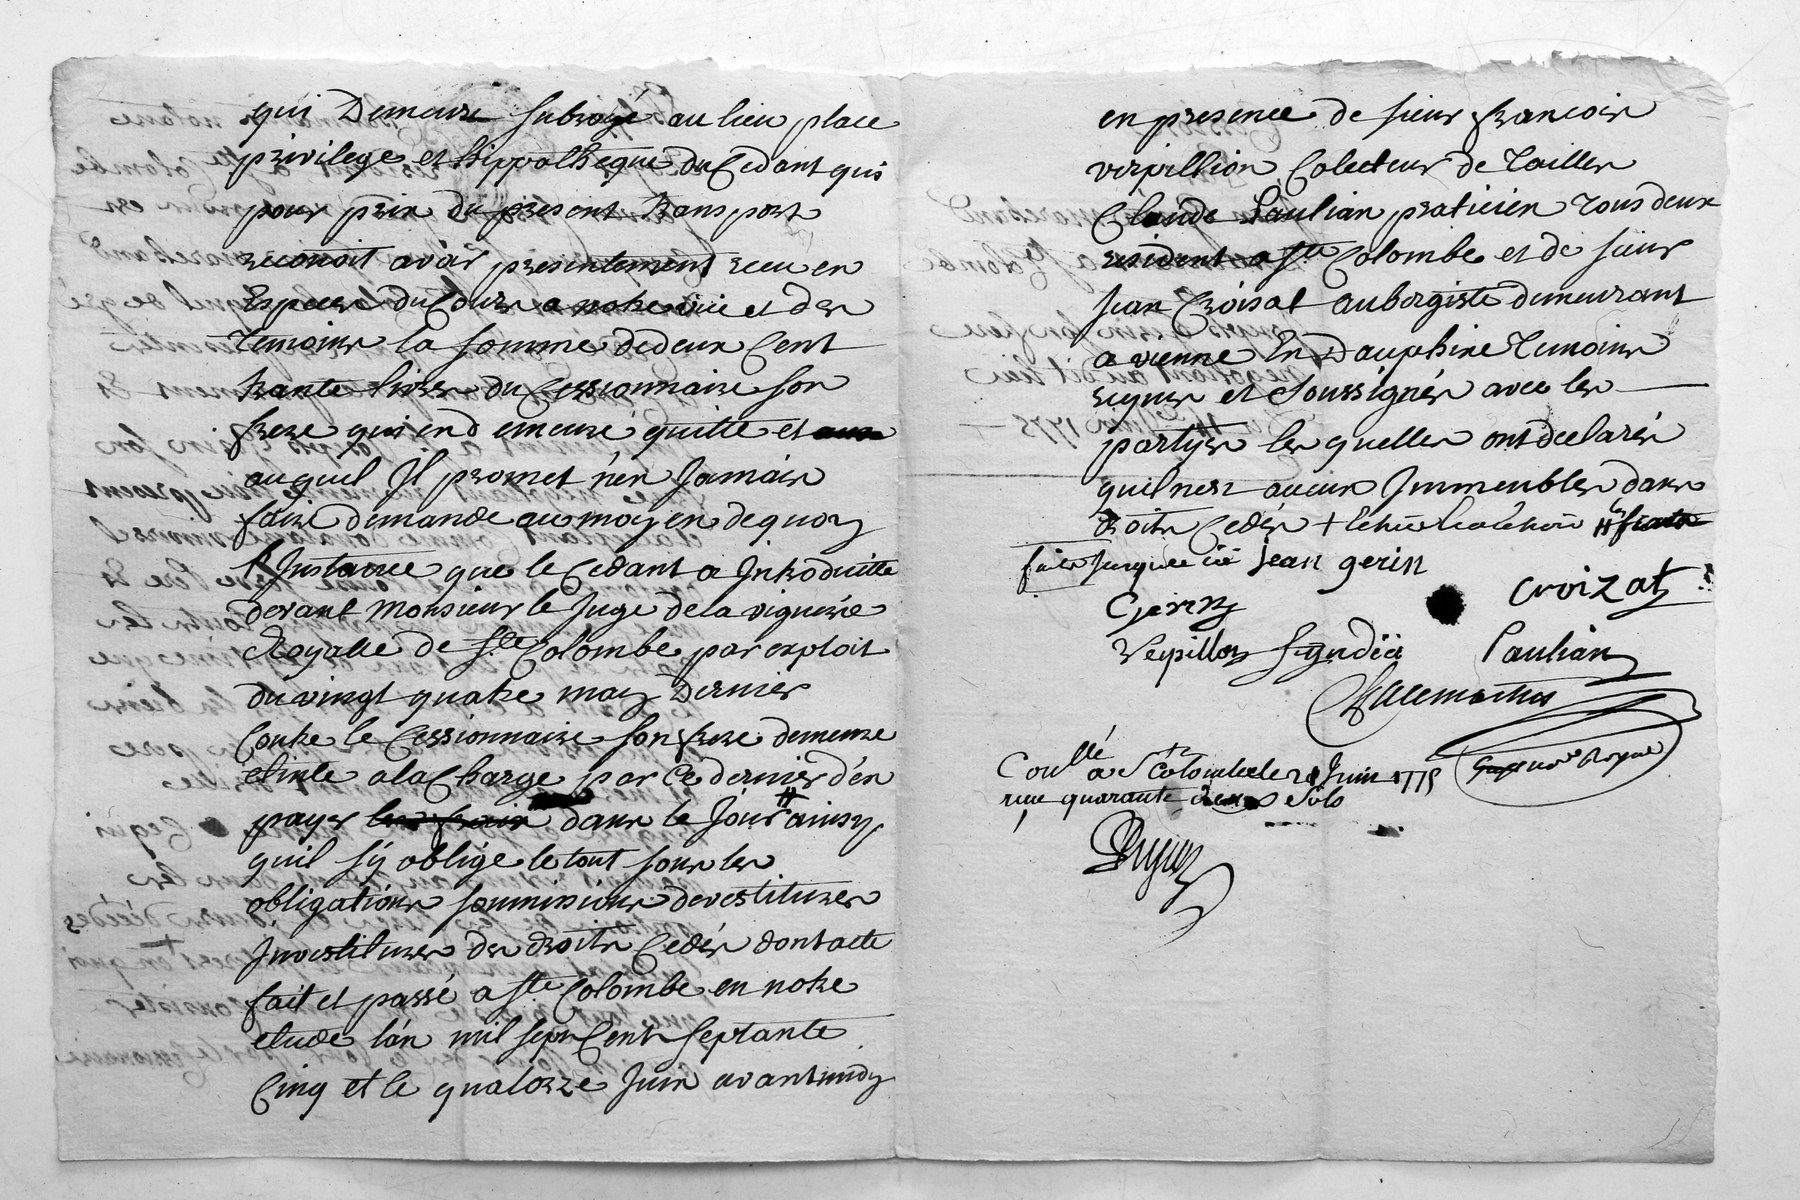 qui Demeure subrogé au lieu place
privilege et hippotheque du Cedant qui
pour prix du present transport
reconoit avoir presentement receu en
Especes du Cours a notre vüe et des
temoins la somme de deux Cent
trante livres du Cessionnaire son
frere qui en demeure quitte et
auquel Il promet n'en Jamais
faire demande au moyen de quoy
l'Instance que le Cedant a Introduitte
devant monsieur le Juge de la viguerie
Royalle de Ste Colombe par exploit
du vingt quatre may Dernier
Contre le Cessionnaire son frere demeure
eteinte a la Charge par ce dernier d'en
payer les frais dans le Jour ainsy
quil s'y oblige le tout sous les
obligations soumissions devestitures
Investitures des droits Cedés dont acte
fait et passé a Ste Colombe en notre
etude l'an mil sept Cent septante
Cinq et le quatorze Juin avant midy
en presence de sieur francois
verpillion Colecteur de tailles
Claude Paulian praticien tous deux
resident a Ste Colombe et de sieur
Jean Croisat aubergiste demeurant
a vienne En Dauphiné temoins
requis et soussignés avec les
partyes les quelles ont declarés
quil n'est aucun Immeubles dans
droits Cedés +
jean gerin
Gerin
croizat
Verpillon Paulian
Coullé a Ste Colombe le 21 Juin 1775
reçu quarante deux sols